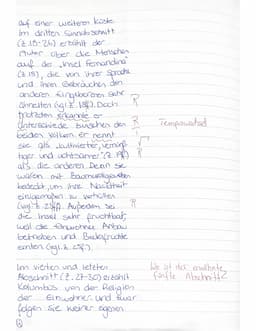 auf einer weiteren Küste.
Im dritten Sinnabschnitt
(Z.15-26) erzählt der
Autor über die Menschen
auf der „Insel Fernandina"
(Z.15), die von ihrer Sprache
und ihren Gebräuchen den
anderen Eingeborenen sehr
ähnelten (vgl. Z. 18f). Doch
trotzdem erkannte er R
Unterschiede zwischen den R Tempuswechsel
beiden Völkern. Er nennt
sie als „kultivierter, vernünf-
tiger und achtsamer" (Z. 19f) R
als die anderen. Denn sie
waren mit Baumwollgewändern
bedeckt, um ihre Nacktheit
einigermaßen zu verhüllen
(vgl. Z. 21ff). Außerdem sei R
die Insel sehr fruchtbar,
weil die Einwohner Anbau
betreiben und Bodenfrüchte
ernten (vgl. Z. 25f).
Im vierten und letzten Wo ist der
Abschnitt (Z. 27-30) erzählt fünfte Abschnitt?
Kolumbus von der Religion
der Einwohner und zwar
folgen sie keiner eigenen